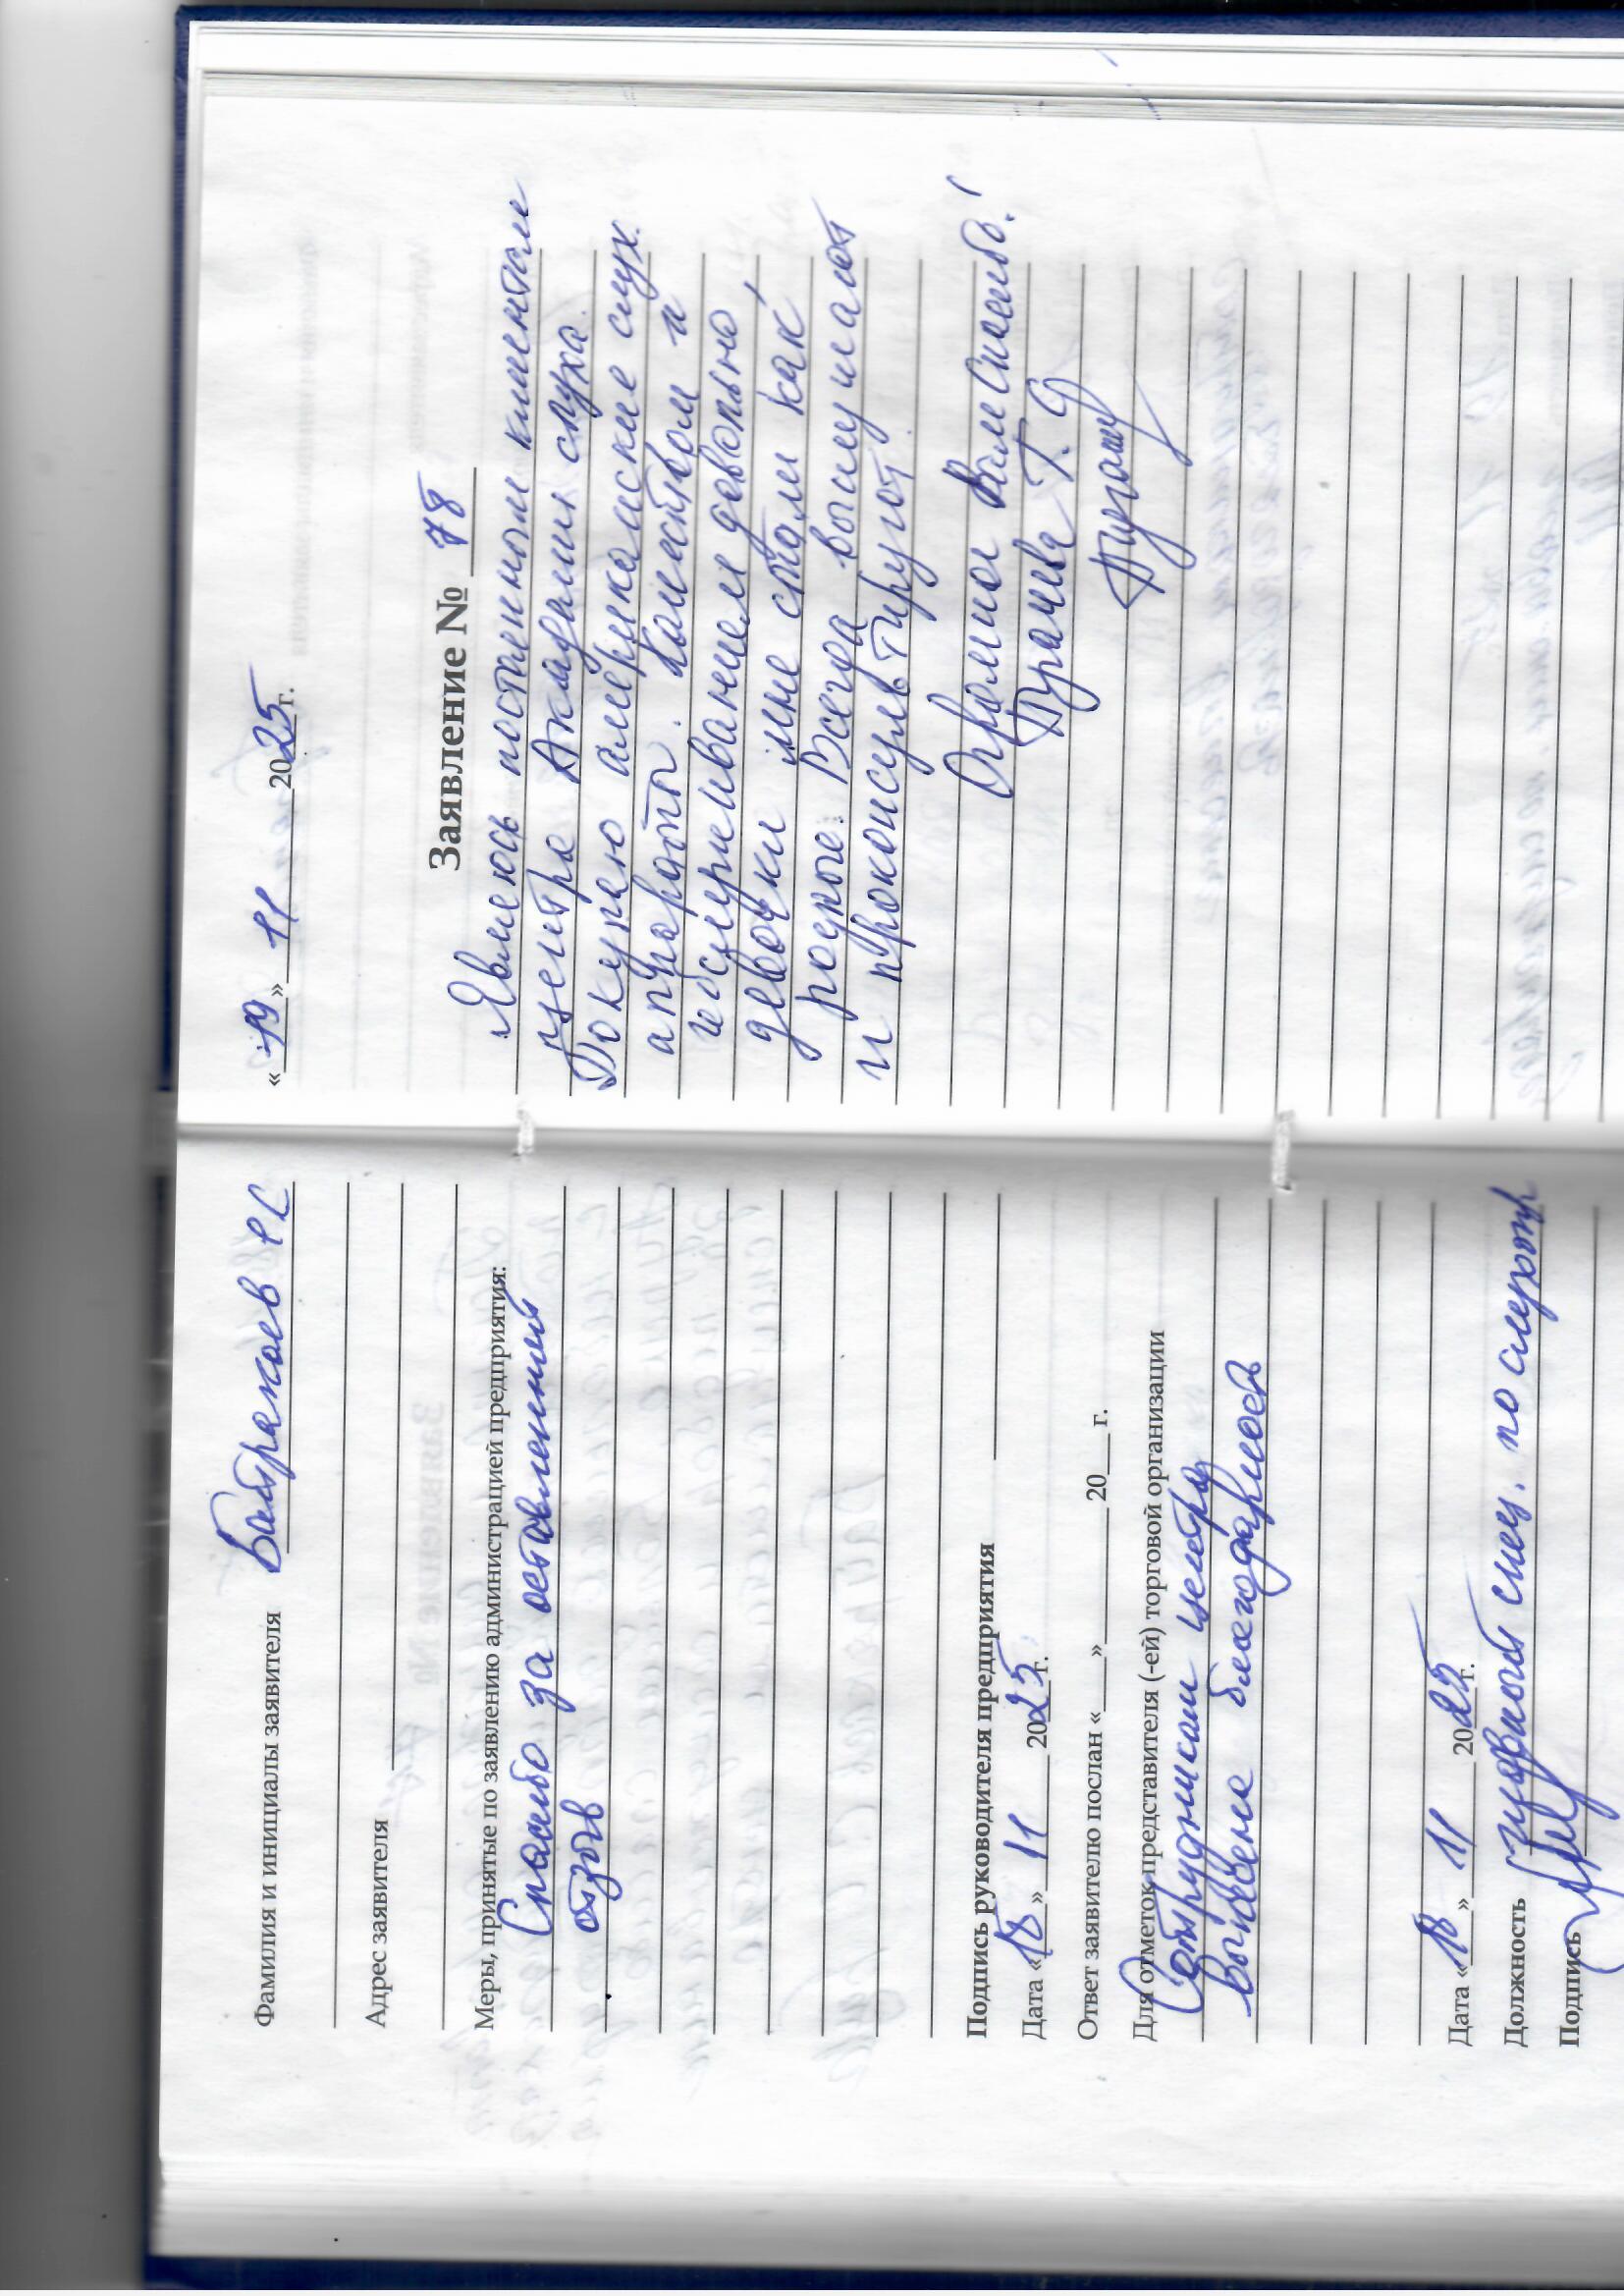 Фамилия и инициалы заявителя Батракаев РС
Адрес заявителя
Меры, принятые по заявлению администрацией предприятия:
Спасибо за оставленный
отзыв
Подпись руководителя предприятия
Дата «18» 11 2025 г.
Ответ заявителю послан «___» ______ 20___ г.
Для отметок представителя (-ей) торговой организации
Сотрудникам центра
вынесена благодарность
Дата «18» 11 2025 г.
Должность спец. по слухопр
Подпись
«19» 11 2025 г.
Заявление № 78
Являюсь постоянным клиентом
центра Академия слуха.
Покупаю американские слух.
аппараты. Качеством и
обслуживанием довольна,
девочки мне стали как
родные. Всегда выслушают
и проконсультируют.
Огромное Вам Спасибо!
Т. Ф